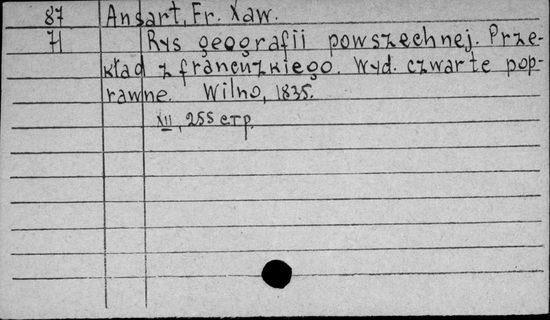 87 Ansart, Fr. Xaw.
71 Rys geografii powszechnej. Prze-
kład z francuzkiego. Wyd. czwarte pop-
rawne. Wilno, 1835.
XII, 255 стр.